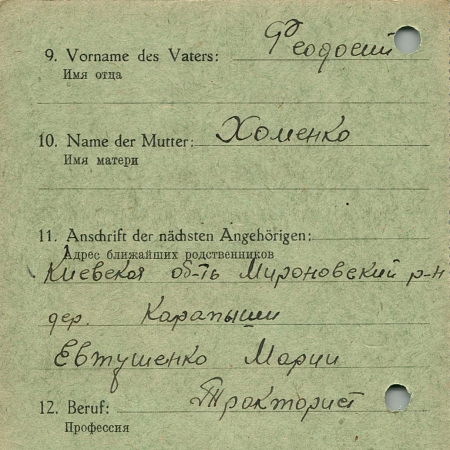 9. Vorname des Vaters: Феодосий
Имя отца
10. Name der Mutter: Хоменко
Имя матери
11. Anschrift der nächsten Angehörigen:
Адрес ближайших родственников
Киевская об-ть Мироновский р-н
дер. Карапыши
Евтушенко Марии
12. Beruf: Тракторист
Профессия